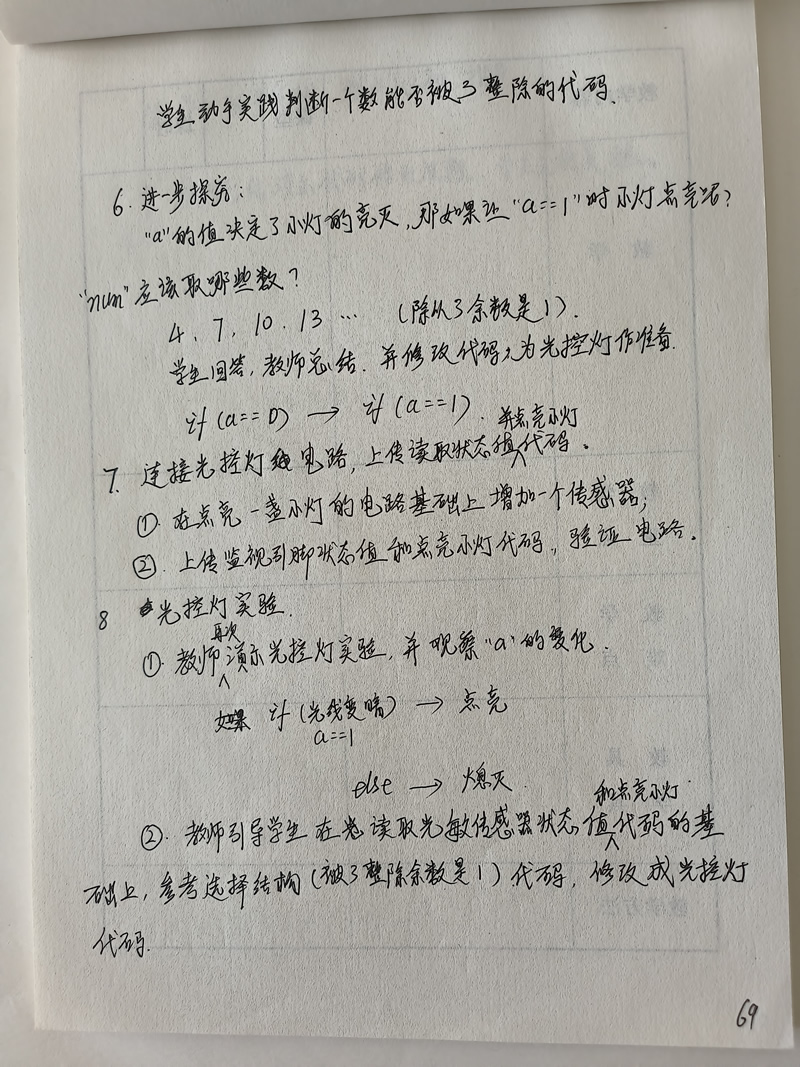 学生动手实践判断一个数能否被3整除的代码.
6. 进一步探究:
"a"的值决定了小灯的亮灭,那如果让"a==1"时小灯点亮呢?
"num"应该取哪些数?
4、7、10、13 … (除以3余数是1).
学生回答,教师总结.并修改代码,为光控灯作准备.
if (a==0) → if (a==1).
7. 连接光控灯电路,上传读取状态值并点亮小灯代码。
①. 在点亮一盏小灯的电路基础上增加一个传感器;
②. 上传监视引脚状态值和点亮小灯代码,验证电路。
8 光控灯实验.
①. 教师再次演示光控灯实验,并观察"a"的变化.
if (光线变暗) → 点亮
a==1
else → 熄灭.
②. 教师引导学生在读取光敏传感器状态值和点亮小灯代码的基
础上,参考选择结构(被3整除余数是1)代码,修改成光控灯
代码.
69